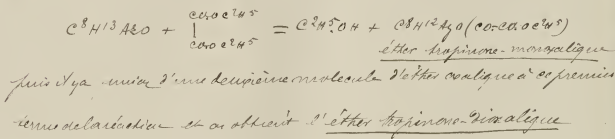 C⁸H¹³AzO + CO-O C²H⁵ = C²H⁵.OH + C⁸H¹²AzO(CO-CO.O C²H⁵)
CO-O C²H⁵
éther tropinone-monoxalique
puis il y a union d'une deuxième molecule d'éther oxalique à ce premier
terme de la réaction et on obtient l'éther tropinone-dioxalique